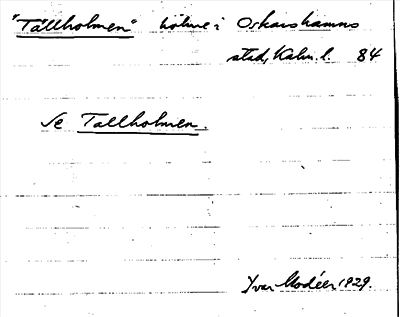 "Tällholmen" holme i Oskarshamns
stad, Kalm. l. 84
Se Tallholmen.
Ivar Modéer 1929.